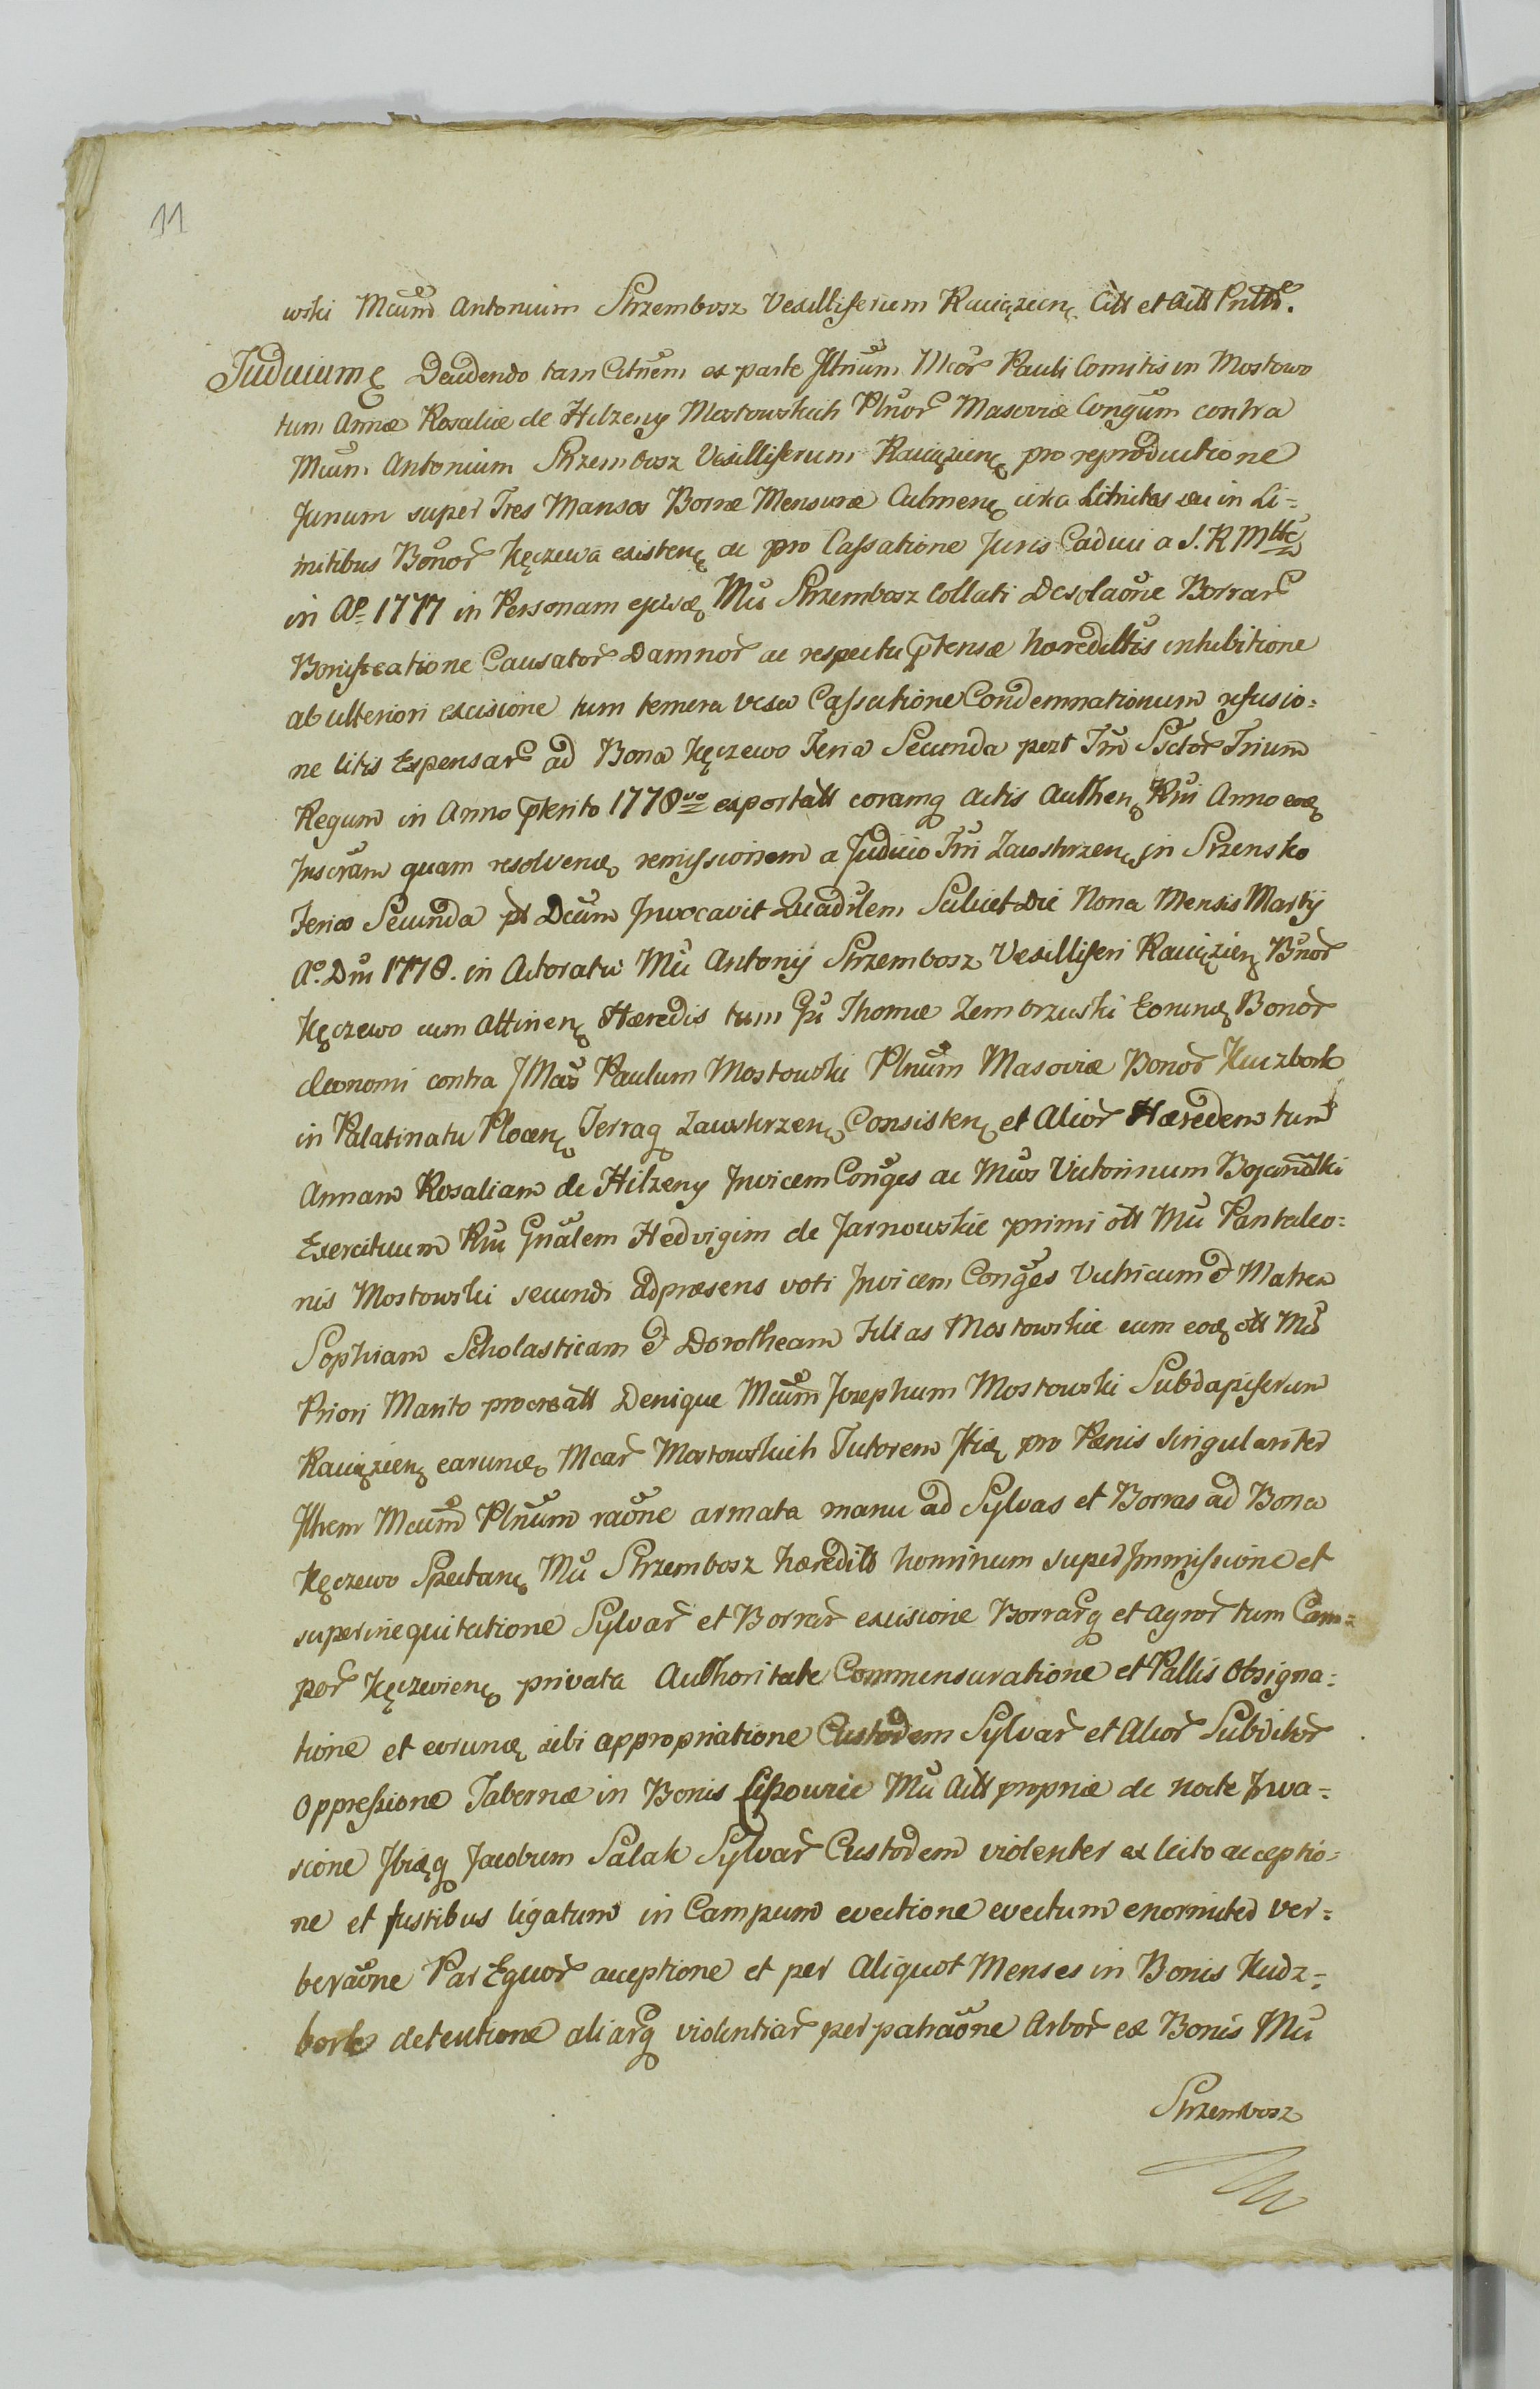 11
wski Mcum Antonium Strzembosz Vexilliferum Raciązien. Citt et Actt Prltr.
Judiciumq Decidendo tam Citnem ex parte Jllrium Mcor Pauli Comitis in Mostowo
tum Annæ Rosaliæ de Hilzeny Mostowskich Plnor Masoviæ Congum contra
Mcum Antonium Strzembosz Vexilliferum Raciązienę pro reproductione
Jurium super Tres Mansos Borræ Mensuræ Culmenę circa Limites seu in Li=
mitibus Bonor Kęczewa existenę ac pro Cassatione Juris Caduci a S. R Mtte
in Ao 1777 in Personam ejusdę Mci Strzembosz Collati Desolaone Borrar
Bonificatione Causator Damnor ac respectu ptensæ hæredittis inhibitione
ab ulteriori excisione tum temera vexa Cassatione Condemnationum refusio=
ne litis Expensar ad Bona Kęczewo Feria Secunda pozt Fm Sctor Trium
Regum in Anno pterito 1778vo exportatt coramq Actis Authenę Rni Anno eodę
Jnscram quam resolvendę remissionem a Judicio Fri Zawskrzenę in Szrensko
Feria Secunda pt Dcum Jnvocavit Quadrlem Scilicet Die Nona Mensis Martij
Ao. Dni 1778. in Actoratu Mci Antonij Strzembosz Vexilliferi Raciązienę Bnor
Kęczewo cum Attinenę Hæredis tum Gsi Thomæ Zembrzuski Eorundę Bonor
Œconomi contra JllMos Paulum Mostowski Plnum Masoviæ Bonor Kuczbork
in Palatinatu Plocenę Terraq Zawskrzenę Consistenę et Alior Hæredem tum
Annam Rosaliam de Hilzeny Jnvicem Conges ac Mcos Victorinum Bojanowski
Exercituum Rni Gnalem Hedvigim de Jarnowskie primi ott Mci Pantaleo=
nis Mostowski secundi adpræsens voti Jnvicem Conges Vitricum & Matrem
Sophiam Scholasticam & Dorotheam Filias Mostowskie cum eodę ott Mci
Priori Marito procreatt Denique Mcum Josephum Mostowski Subdapiferum
Raciązienę earundę Mcar Mostowskich Tutorem Jtidę pro Pœnis singulariter
Jllrem Mcum Plnum raone armata manu ad Sylvas et Borras ad Bona
Kęczewo Spectanę Mci Strzembosz hæreditt hominum super Jmmissione et
superinequitatione Sylvar et Borrar excisione Borrarq et Agror tum Cam=
por Kęczewienę privata Authoritate Commensuratione et Pallis Obsigna=
tione et eorundę sibi appropriatione Custodem Sylvar et Alior Subditor
Oppressione Tabernæ in Bonis Mci Actt propriæ de nocte Jnva=
sione Jbidęq Jacobum Salak Sylvar Custodem violenter ex lecto acceptio=
ne et fustibus ligatum in Campum evectione evectum enormiter ver=
beraone Par Equor acceptione et per Aliquot Menses in Bonis Kudz=
bork detentione aliarq violentiar perpatraone Arbor ex Bonis Mci
Strzembosz